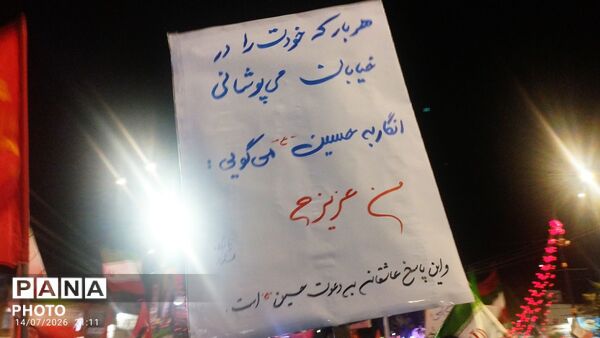 هر بار که خودت را در
خیابان می‌پوشانی
انگار به حسین "ع" می‌گویی :
من عزیز
و این پاسخ عاشقانه به دعوت حسین "ع" است.
PANA
PHOTO
14/07/2026 21:11